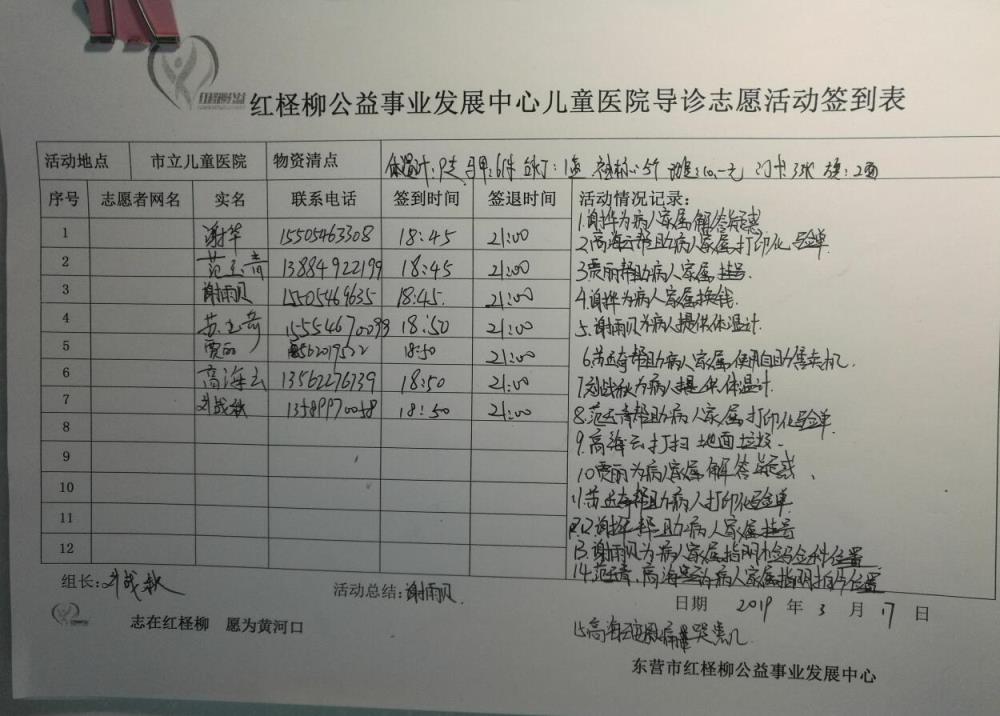 红柽柳公益事业发展中心儿童医院导诊志愿活动签到表
活动地点 市立儿童医院 物资清点 体温计:9支 马甲:6件
序号 志愿者网名 实名 联系电话 签到时间 签退时间 活动情况记录:
1 谢华 15505463308 18:45 21:00
2 范玉青 13884922199 18:45 21:00
3 谢雨贝 15505469635 18:45. 21:00
4 苏玉奇 18:50 21:00
5 贾丽 18:50 21:00
6 高海云 13562276739 18:50 21:00
7 刘战秋 18:50 21:00
8
9
10
11
12
1.谢华为病人家属解答疑惑
2.高海云帮助病人家属打印化验单
3.贾丽帮助病人家属挂号.
4.谢华为病人家属换钱.
5.谢雨贝为病人提供体温计.
6.苏玉奇帮助病人家属使用自助售卖机.
7.刘战秋为病人提供体温计.
8.范玉青帮助病人家属打印化验单.
9.高海云打扫地面垃圾.
10.贾丽为病人家属解答疑惑.
11.苏玉奇帮助病人打印化验单
12.谢华帮助病人家属挂号
13.谢雨贝为病人家属指明 位置
14.范玉青、高海云 病人家属指明 位置
组长:刘战秋 活动总结:谢雨贝.
日期 2019 年 3 月 17 日
志在红柽柳 愿为黄河口
15.高海云 哭患儿.
东营市红柽柳公益事业发展中心